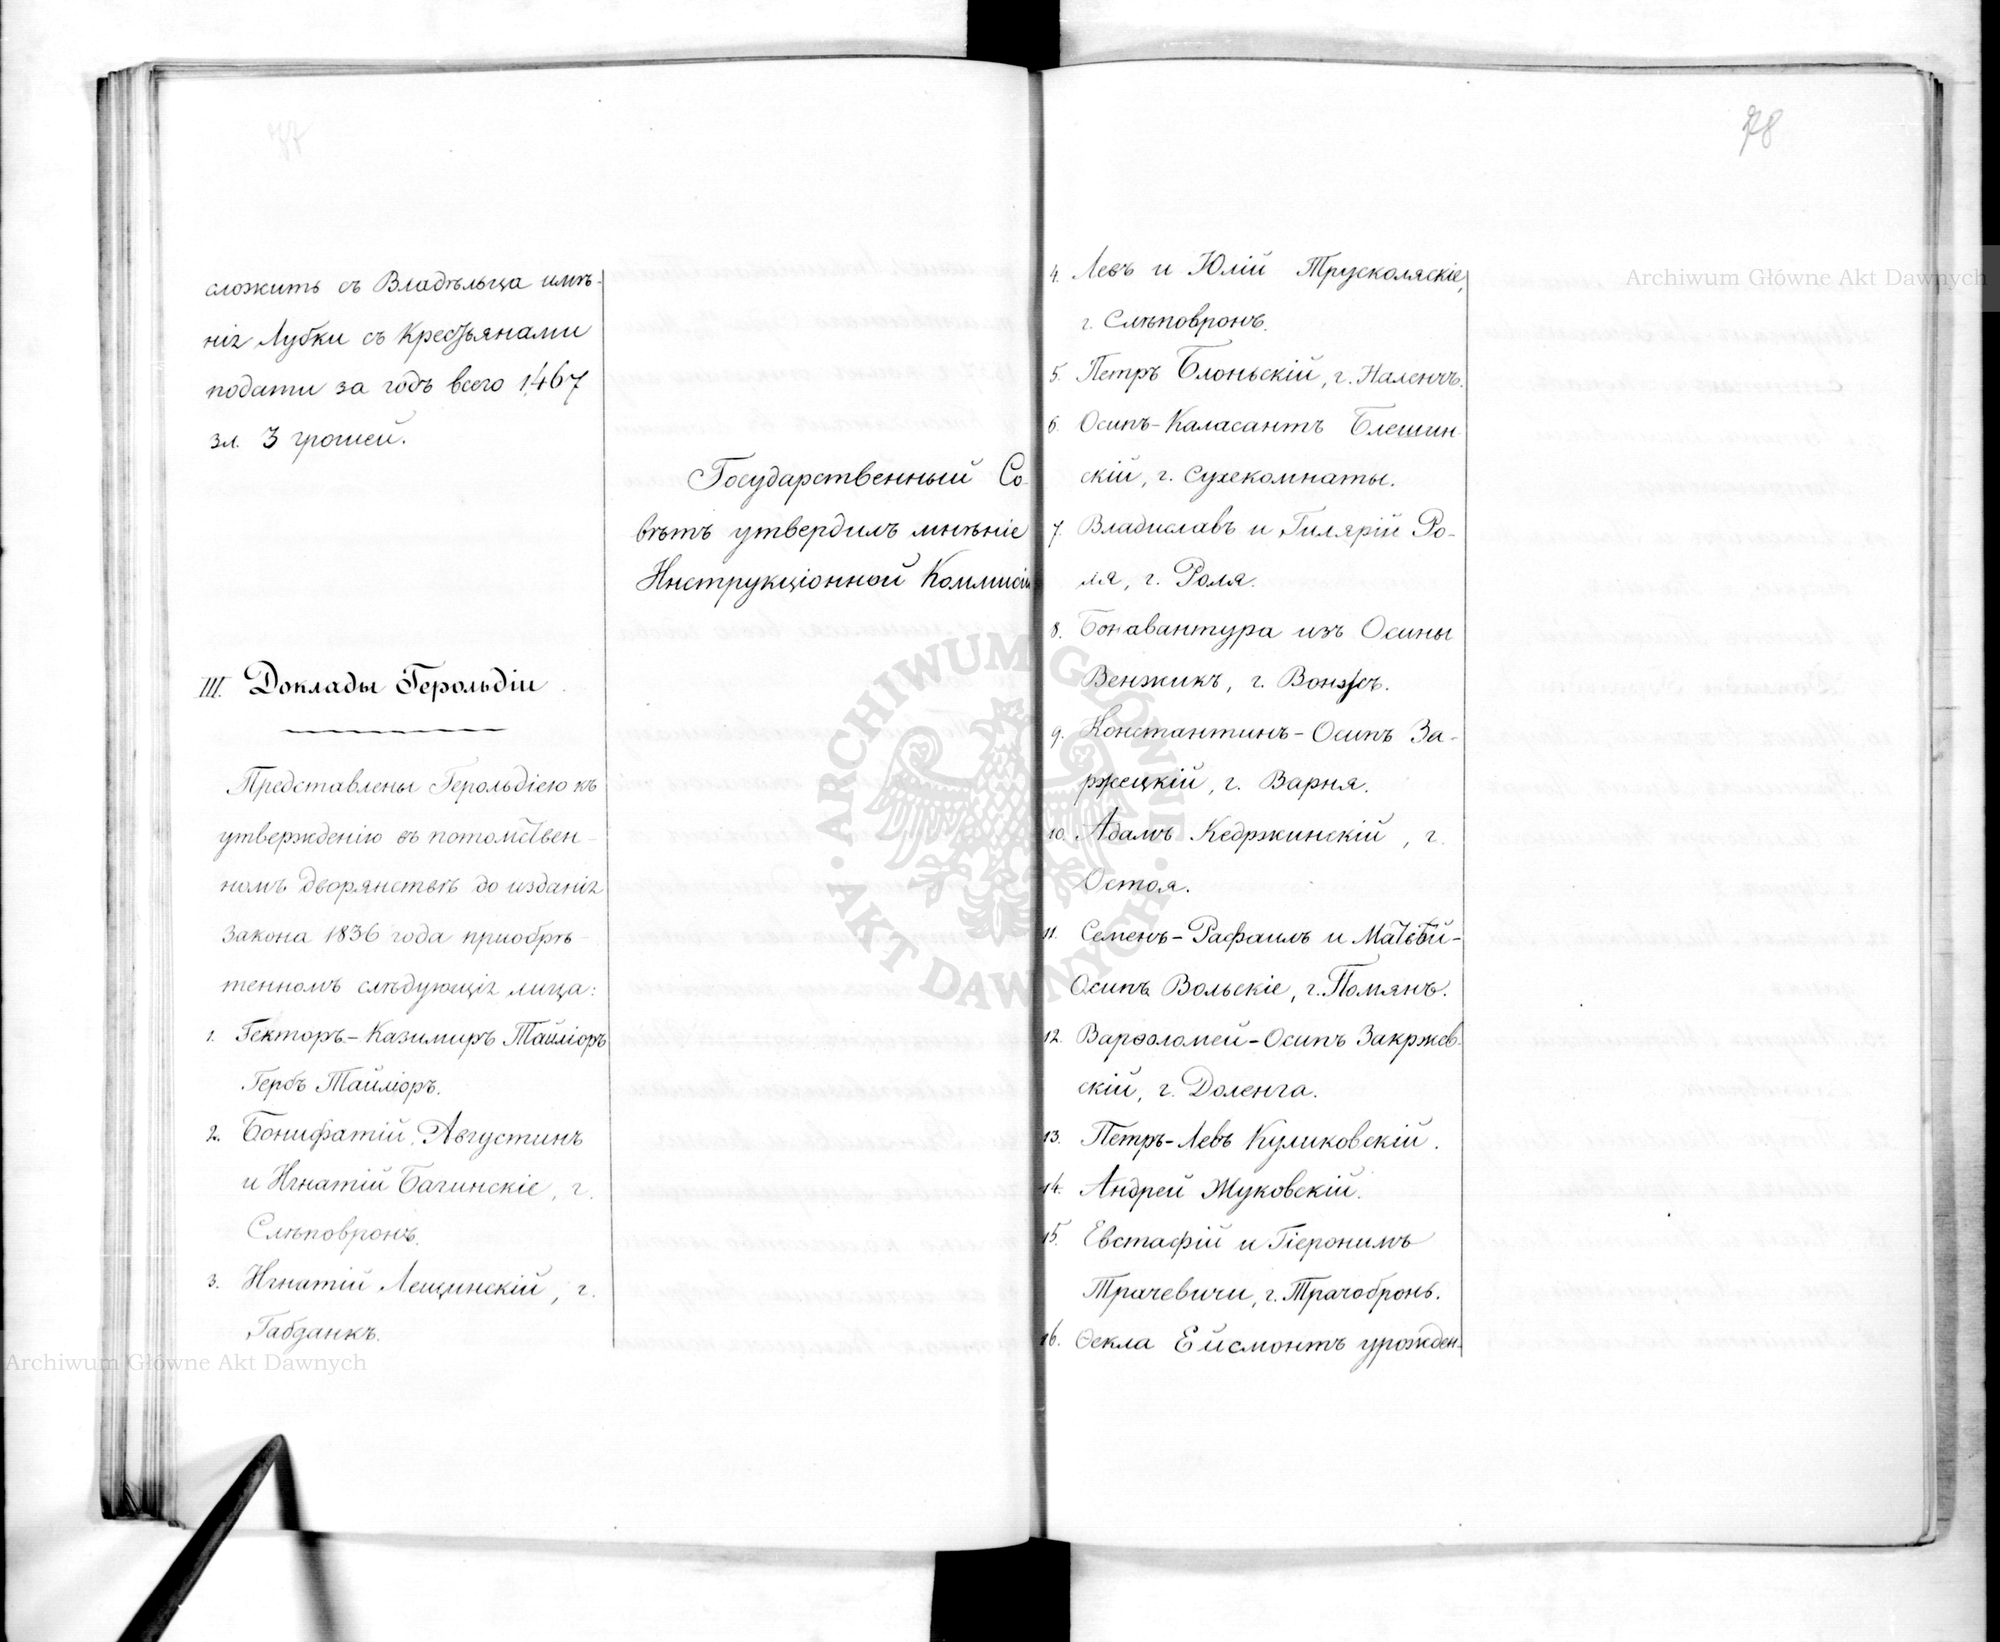 сложить съ Владѣльца имѣ-
нія Лубки съ Крестьянами
подати за годъ всего 1,467
зл. 3 грошей.
Государственный Со-
вѣтъ утвердилъ мнѣніе
Инструкціонной Коммисіи
III. Доклады Герольдіи
Представлены Герольдіею къ
утвержденію въ потомствен-
номъ дворянствѣ до изданія
Закона 1836 года приобрѣ-
тенномъ слѣдующія лица:
1. Гекторъ-Казимиръ Тайліоръ
Гербъ Тайліоръ.
2. Бонифатій, Августинъ
и Игнатій Багинскіе, г.
Слѣповронъ.
3. Игнатій Лещинскій, г.
Габданкъ.
78
4. Левъ и Юлій Трусколяскіе,
г. Слѣповронъ.
5. Петръ Блоньскій, г. Наленчъ.
6. Осипъ-Каласантъ Блешин-
скій, г. Сухекомнаты.
7. Владиславъ и Гилярій Ро-
ля, г. Роля.
8. Бонавантура изъ Осины
Венжикъ, г. Вонжъ.
9. Константинъ-Осипъ За-
ржецкій, г. Варня.
10. Адамъ Кедржинскій, г.
Остоя.
11. Семенъ-Рафаилъ и Матвѣй-
Осипъ Вольскіе, г. Помянъ.
12. Варѳоломей-Осипъ Закржев-
скій, г. Доленга.
13. Петръ-Левъ Куликовскій.
14. Андрей Жуковскій.
15. Евстафій и Гіеронимъ
Трачевичи, г. Трачобронь.
16. Ѳекла Ейсмонтъ урожден-
Archiwum Główne Akt Dawnych
Archiwum Główne Akt Dawnych
ARCHIWUM GŁÓWNE AKT DAWNYCH